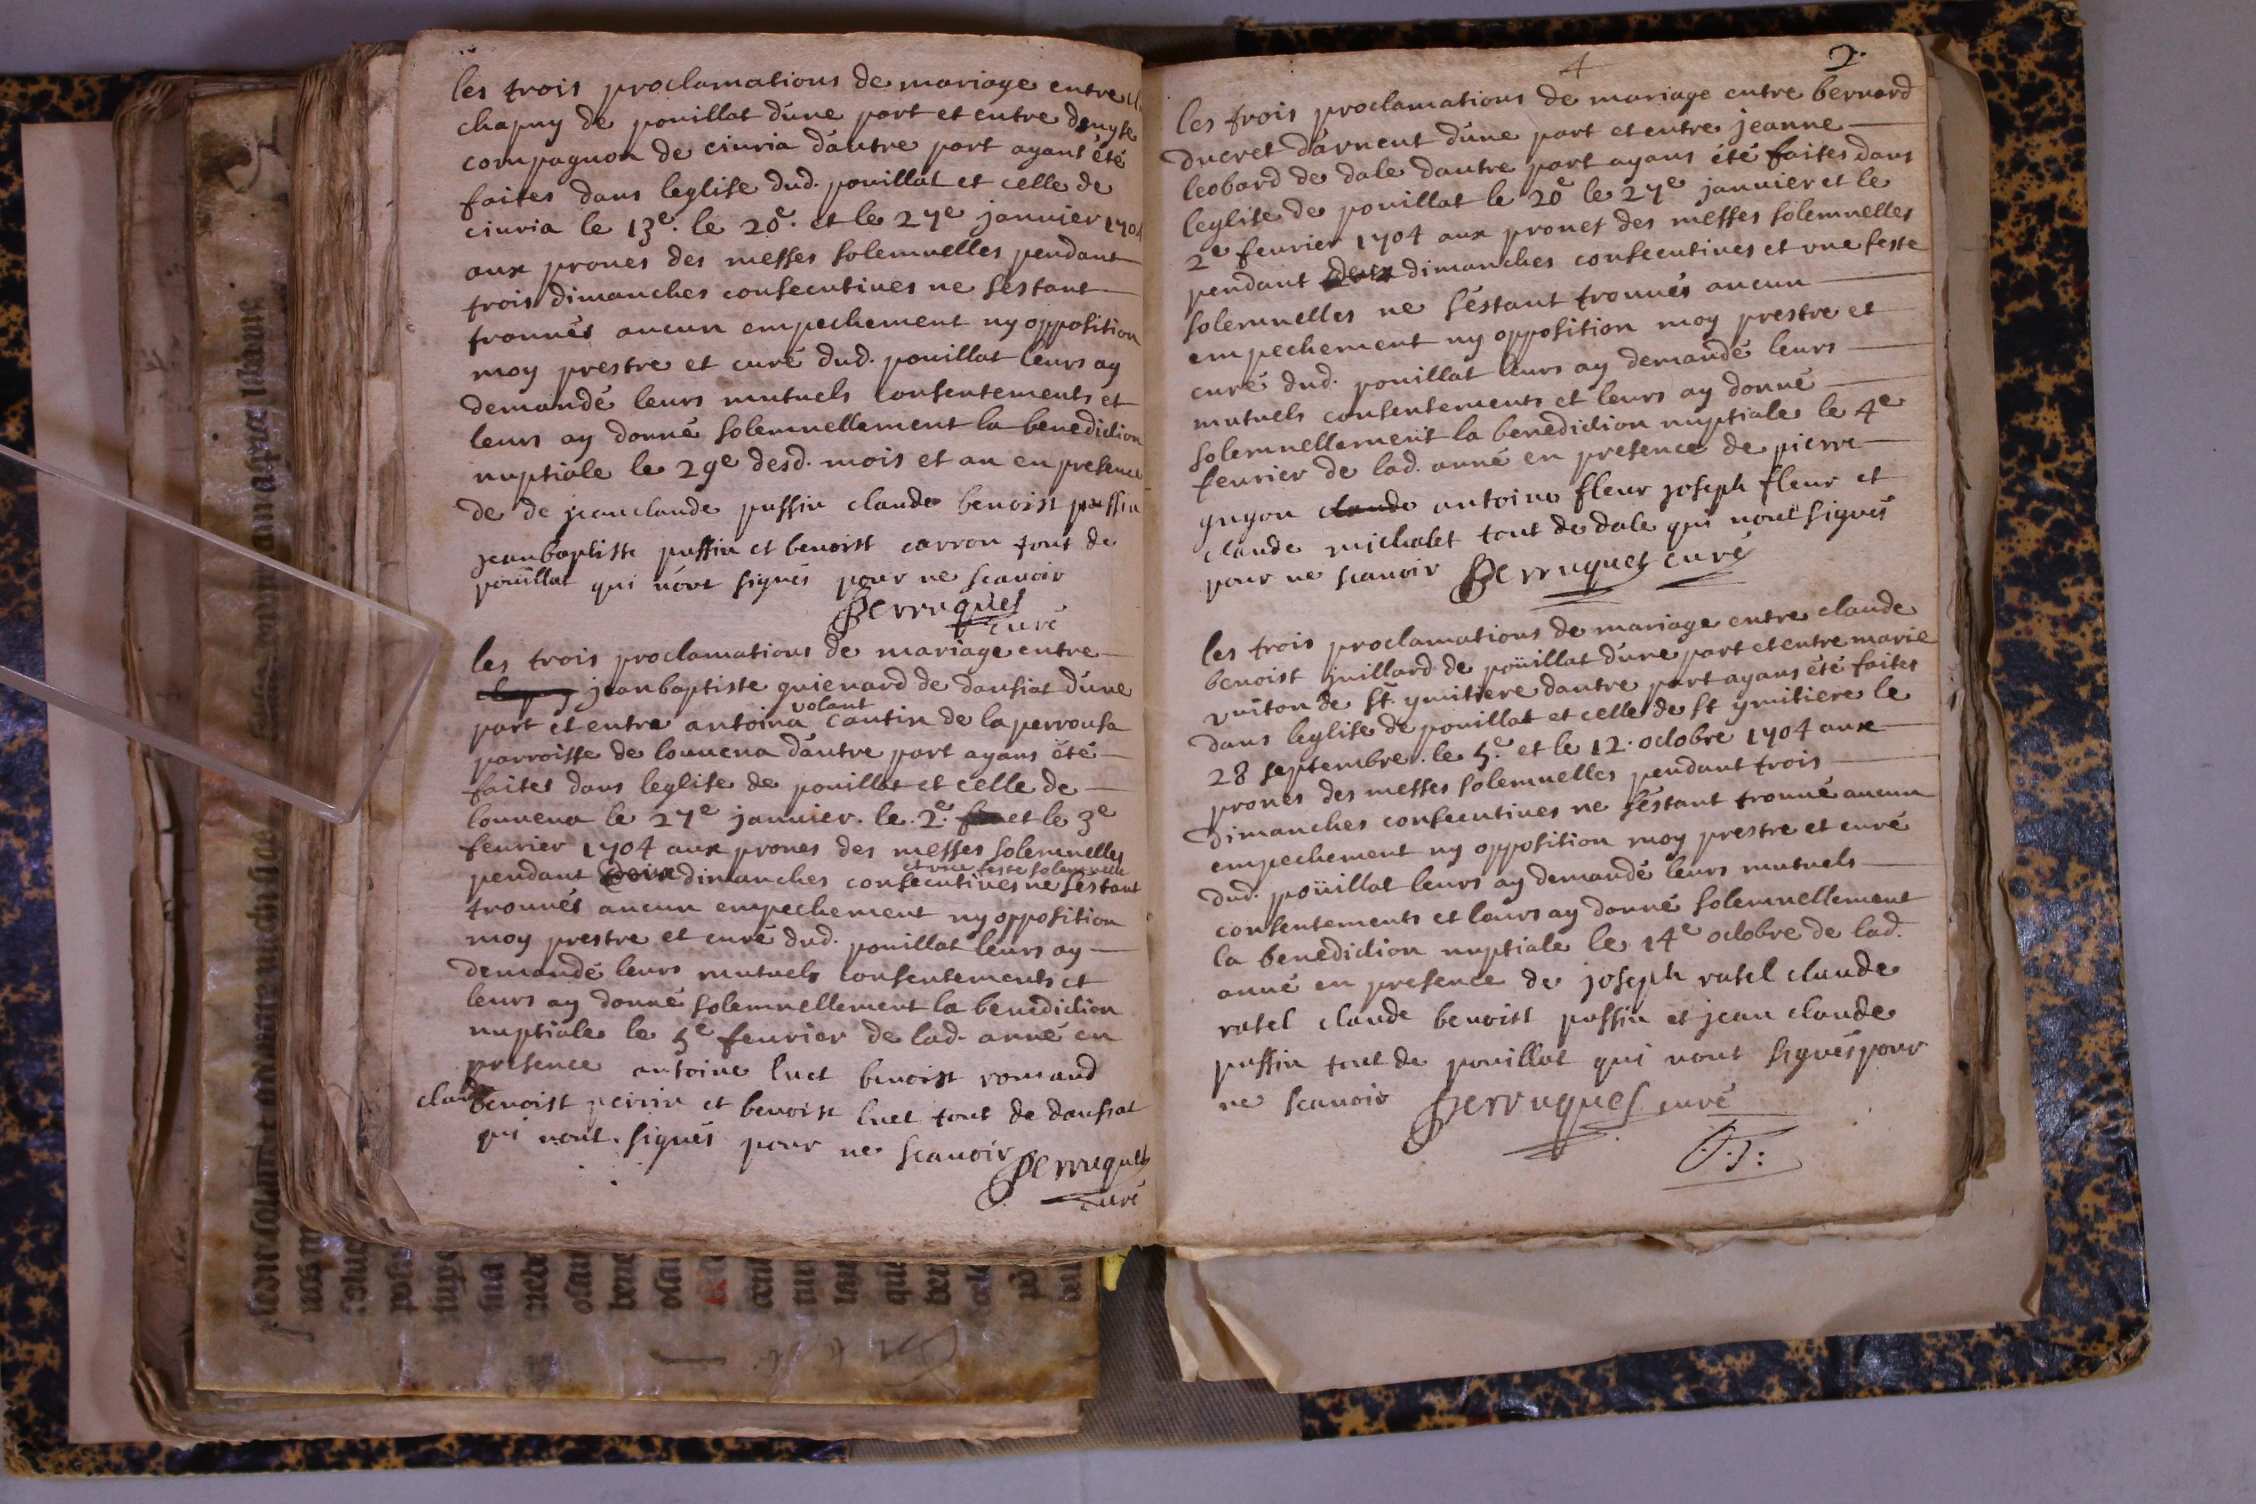 les trois proclamations de mariage entre cl
chapuy de pouillat d'une part et entre denyse
compagnon de ciuria d'autre part ayans été
faites dans leglise dud. pouillat et celle de
ciuria le 13e. le 20e. et le 27e januier 1704
aux prones des messes solemnelles pendant
trois dimanches consecutiues ne sestant
trouués aucun empechement ny opposition
moy prestre et curé dud. pouillat leurs ay
demandé leurs mutuels consentements et
leurs ay donné solemnellement la benediction
nuptiale le 29e desd. mois et an en presence
de de jeanclaude puffin claude benoist puffin
jeanbaptiste puffin et benoist carron tout de
pouillat qui nont signés pour ne scauoir
Perruquet
curé
les trois proclamations de mariage entre
jeanbaptiste guienard de dansiat d'une
volant
part et entre antoina cantin de la perrousa
parroisse de louuena d'autre part ayans été
faites dans leglise de pouillat et celle de
louuena le 27e januier. le. 2e. et le 3e
feurier 1704 aux prones des messes solemnelles
et vne feste solemnelle
pendant deux dimanches consecutiues ne sestant
trouués aucun empechement ny opposition
moy prestre et curé dud. pouillat leurs ay
demandé leurs mutuels consentements et
leurs ay donné solemnellement la benediction
nuptiale le 5e feurier de lad. anné en
presence antoine luet benoist romand
claude benoist perrin et benoist luet tout de dansiat
qui nont signés pour ne scauoir Perruquet
curé
4 2.
les trois proclamations de mariage entre bernard
ducret d'arnent d'une part et entre jeanne
leobard de dale dautre part ayans été faites dans
leglise de pouillat le 20e le 27e januier et le
2e feurier 1704 aux prones des messes solemnelles
pendant deux dimanches consecutiues et vne feste
solemnelles ne s'éstant trouués aucun
empechement ny opposition moy prestre et
curé dud. pouillat leurs ay demandé leurs
mutuels consentements et leurs ay donné
solemnellement la benediction nuptiale le 4e
feurier de lad. anné en presence de pierre
guyon claude antoine fleur joseph fleur et
claude michalet tout de dale qui nont signés
pour ne scauoir Perruquet curé
les trois proclamations de mariage entre claude
benoist juillard de poüillat d'une part et entre marie
vuiton de st. ymitiere dautre part ayans été faites
dans leglise de pouillat et celle de st ymitiere le
28 septembre. le 5.e et le 12. octobre 1704 aux
prones des messes solemnelles pendant trois
dimanches consecutiues ne s'éstant trouué aucun
empechement ny opposition moy prestre et curé
dud. poüillat leurs ay demandé leurs mutuels
consentements et leurs ay donné solemnellement
la benediction nuptiale le 14e octobre de lad.
anné en presence de joseph ratel claude
ratel claude benoist puffin et jean claude
puffin tout de pouillat qui nont signés pour
ne scauoir Perruquet curé